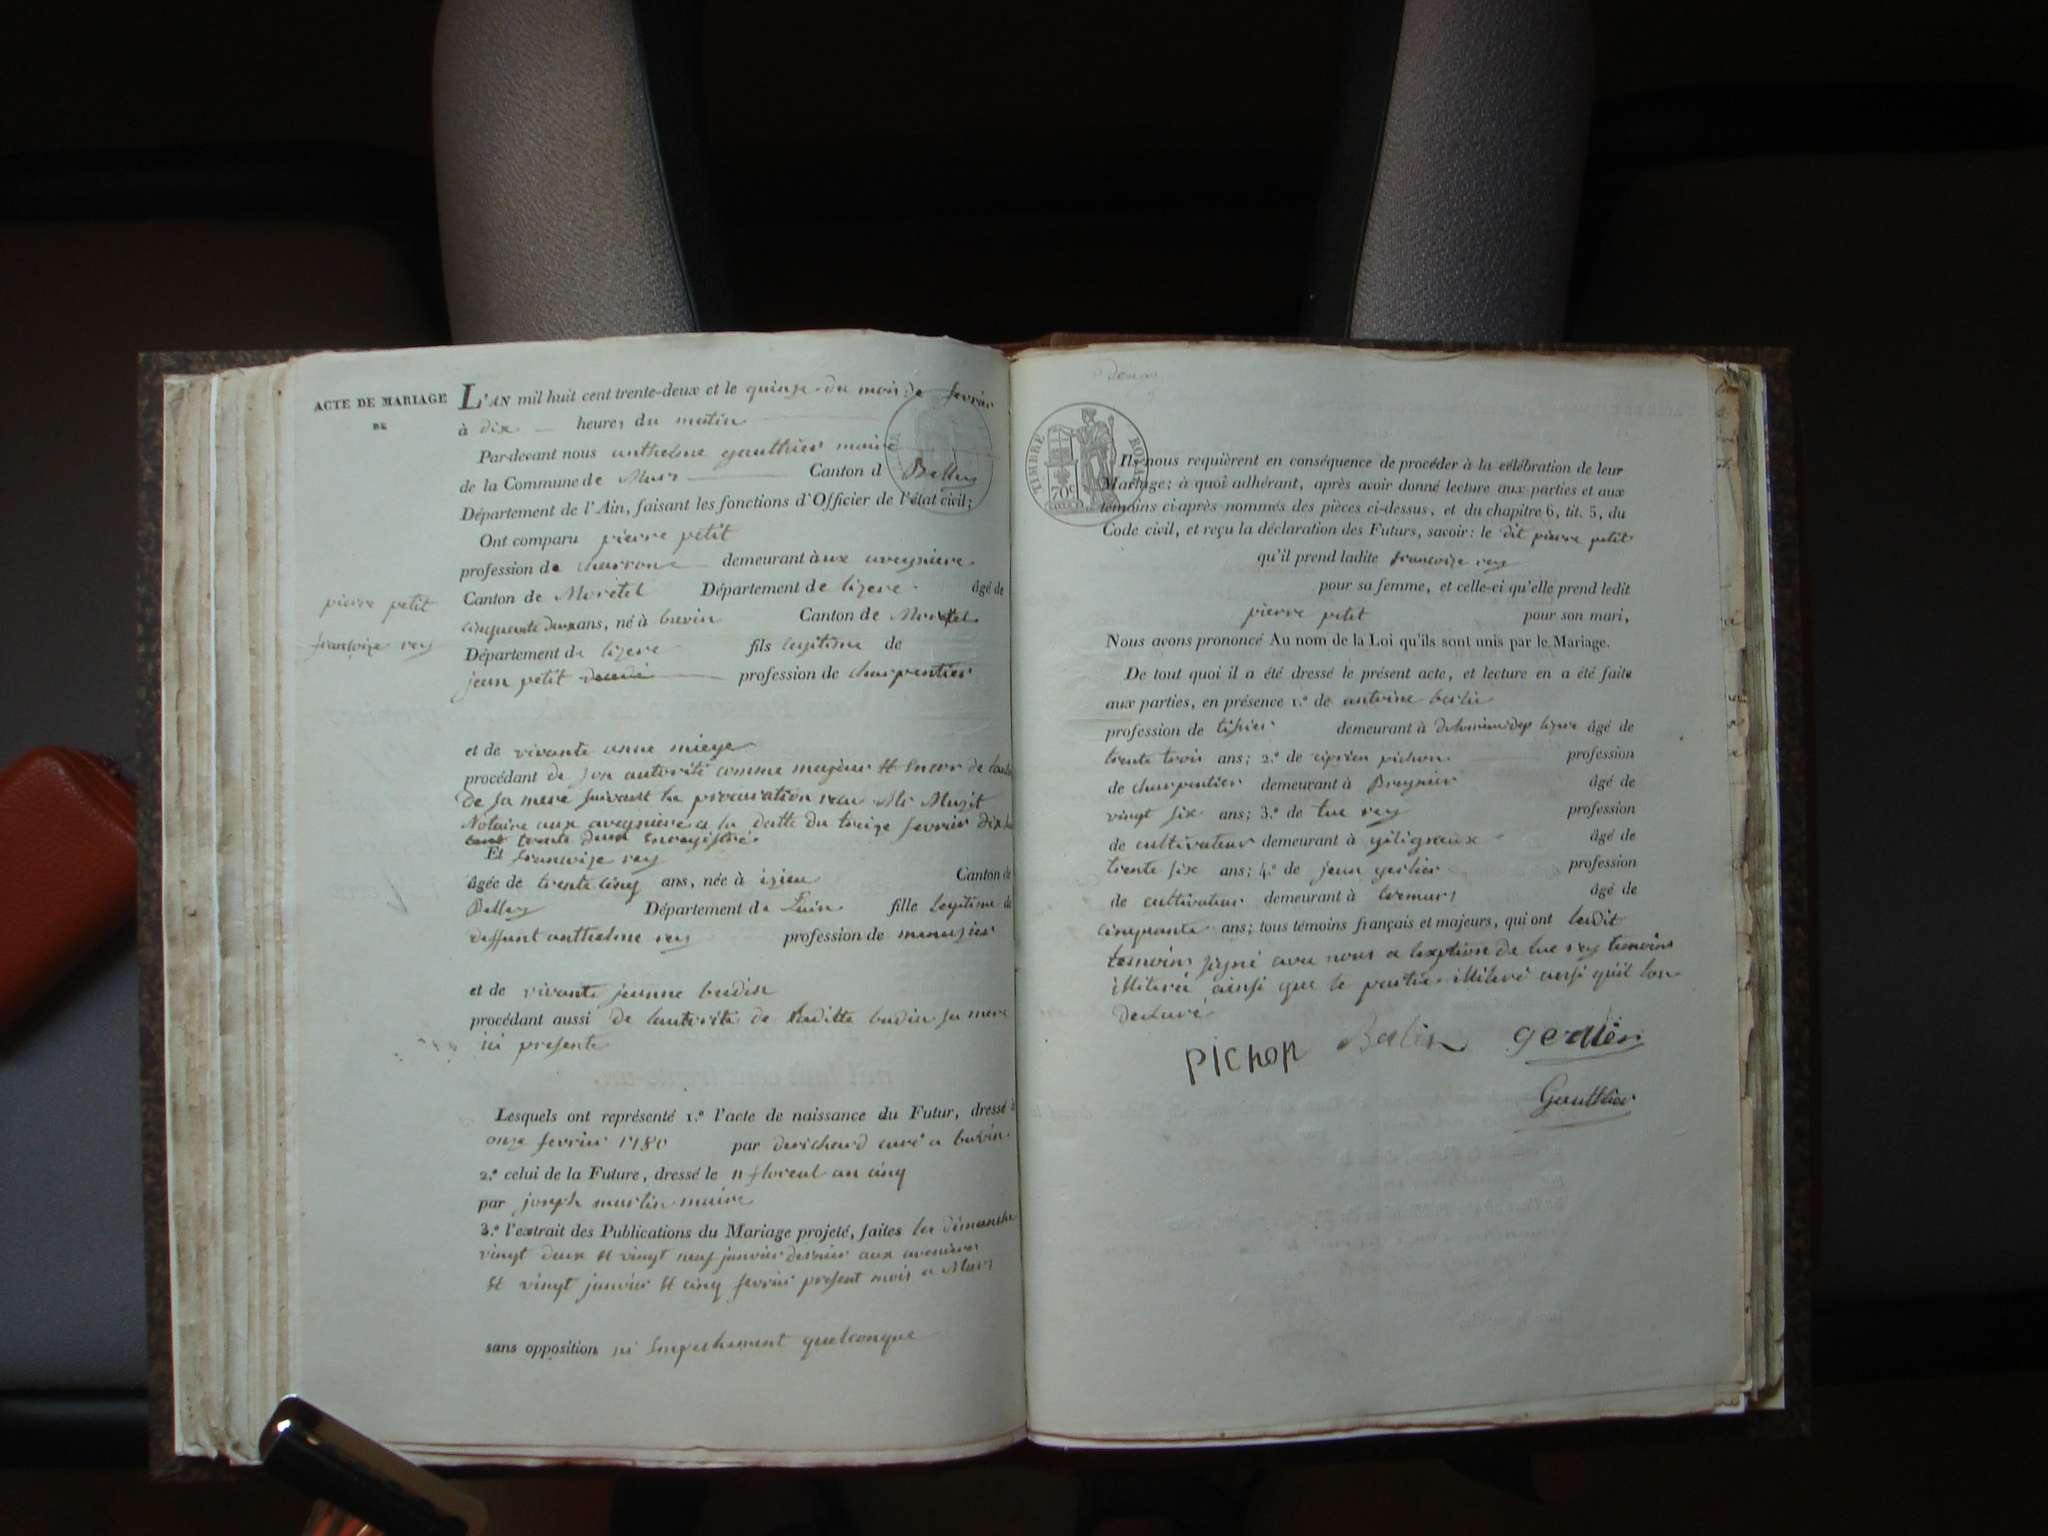 ACTE DE MARIAGE
DE
pierre petit
françoise rey
L'AN mil huit cent trente-deux et le quinze du mois de fevrier
à dix heures du matin
Par-devant nous anthelme gauthier maire
de la Commune de Murs Canton d Belley
Département de l'Ain, faisant les fonctions d'Officier de l'état civil;
Ont comparu pierre petit
profession de charron demeurant à aux aveyniere
Canton de Moretel Département de lizere âgé de
cinquante deux ans, né à buvin Canton de Moretel
Département de lizere fils legitime de
jean petit profession de charpentier
et de vivante anne miege
procédant de son autorité comme majeur et encor de
de sa mere suivant la procuration Me
Notaire aux aveyniere a la datte du treize fevrier dix
trente deux enregistré.
Et françoize rey
âgée de trente cinq ans, née à izieu Canton de
Belley Département de Lain fille legitime de
deffunt anthelme rey profession de menuzier
et de vivante jeanne budin
procédant aussi de lautorité de laditte budin sa mere
ici presente
Lesquels ont représenté 1.º l'acte de naissance du Futur, dressé
onze fevrier 1780 par derichard curé a buvin
2.º celui de la Future, dressé le 11 floreal an cinq
par joseph martin maire
3.º l'extrait des Publications du Mariage projeté, faites les dimanche
vingt deux et vingt neuf janvier dernier aux avenieres
et vingt janvier et cinq fevrier present mois a Murs
sans opposition ni empechement quelconque
TIMBRE ROYAL
70c
Ils nous requièrent en conséquence de procéder à la célébration de leur
Mariage; à quoi adhérant, après avoir donné lecture aux parties et aux
témoins ci-après nommés des pièces ci-dessus, et du chapitre 6, tit. 5, du
Code civil, et reçu la déclaration des Futurs, savoir: le dit pierre petit
qu'il prend ladite françoize rey
pour sa femme, et celle-ci qu'elle prend ledit
pierre petit pour son mari,
Nous avons prononcé Au nom de la Loi qu'ils sont unis par le Mariage.
De tout quoi il a été dressé le présent acte, et lecture en a été faite
aux parties, en présence 1.º de antoine berlin
profession de tisier demeurant à âgé de
trente trois ans; 2.º de ciprien pichon profession
de charpentier demeurant à Bregnier âgé de
vingt six ans; 3.º de luc rey profession
de cultivateur demeurant à gilignieux âgé de
trente six ans; 4.º de jean gerlier profession
de cultivateur demeurant à âgé de
cinquante ans; tous témoins français et majeurs, qui ont lesdit
temoins signé avec nous a lexption de luc rey temoins
illiteré ainsi que le partie illiteré ainsi quil lon
declaré
PICHON Berlin gerlier
Gauthier